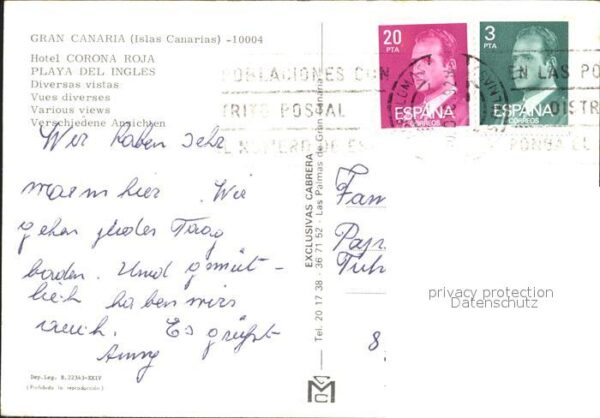 GRAN CANARIA (Islas Canarias) -10004
Hotel CORONA ROJA
PLAYA DEL INGLES
Diversas vistas
Vues diverses
Various views
Verschiedene Ansichten
Wir haben sehr
warm hier. Wir
gehen jeden Taag
baden. Und gemüt-
lich haben wirs
auch. Es grüßt
Anny
Dep. Leg. B.22343-XXIV
(Prohibida la reproducción)
EXCLUSIVAS CABRERA
Tel. 20 17 38 - 36 71 52 - Las Palmas de Gran Canaria
20
PTA
ESPAÑA
CORREOS
3
PTA
ESPAÑA
CORREOS
POBLACIONES CON
TRITO POSTAL
EL NUMERO DE ES
EN LAS PO
DISTR
PONGA EL
Fam
8
privacy protection
Datenschutz